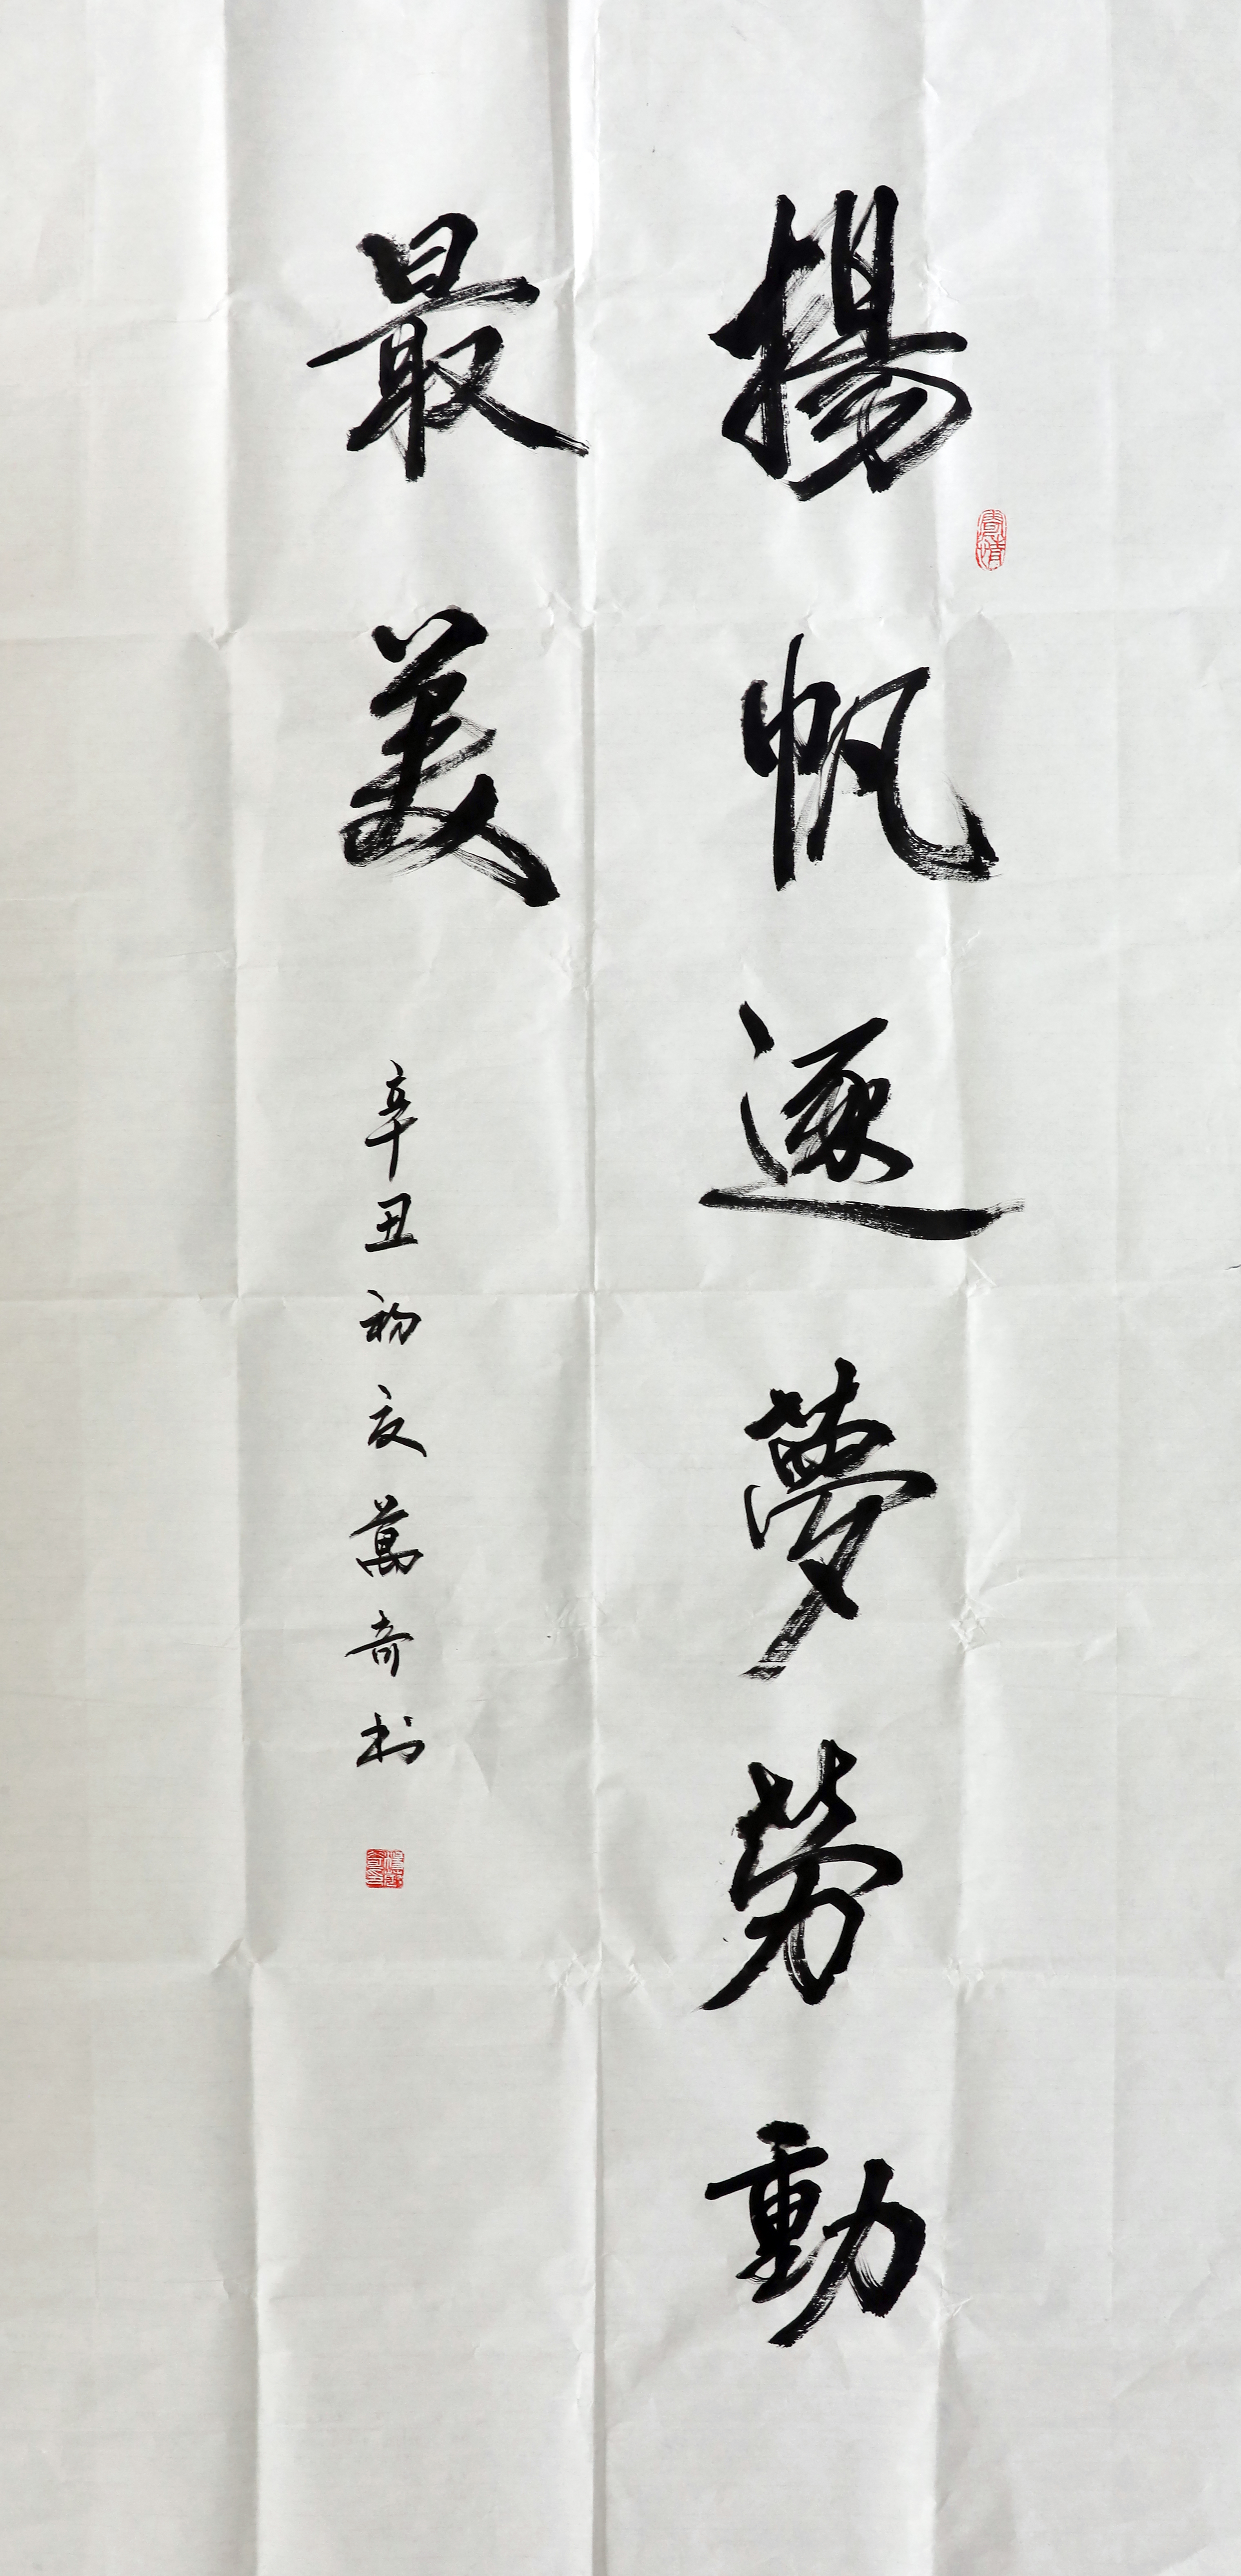 揚帆逐夢勞動
最美
辛丑初夏萬奇書